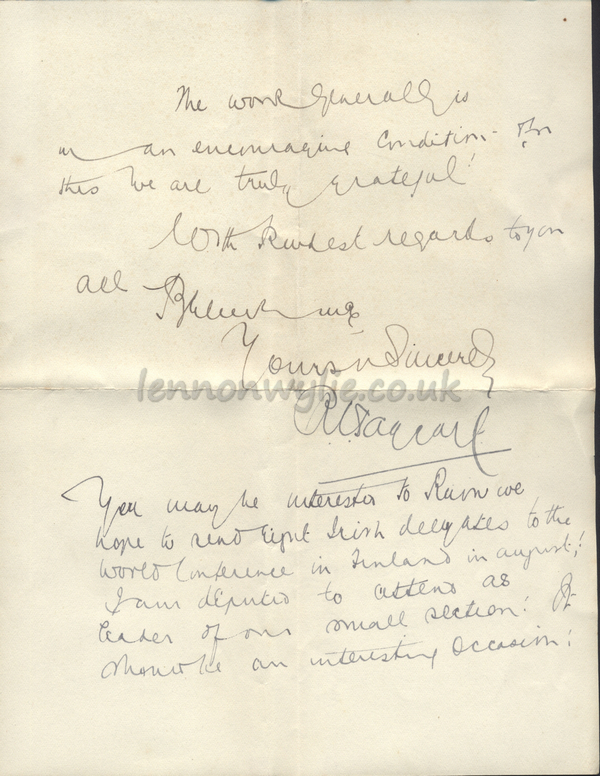 The work generally is
in an encouraging condition – for
this we are truly grateful!
With kindest regards to you
all
Believe me
Yours Sincerely
lennonwylie.co.uk
You may be interested to know we
hope to send eight Irish delegates to the
World Conference in Finland in August,!
I am deputed to attend as
leader of our small section! It
should be an interesting occasion!